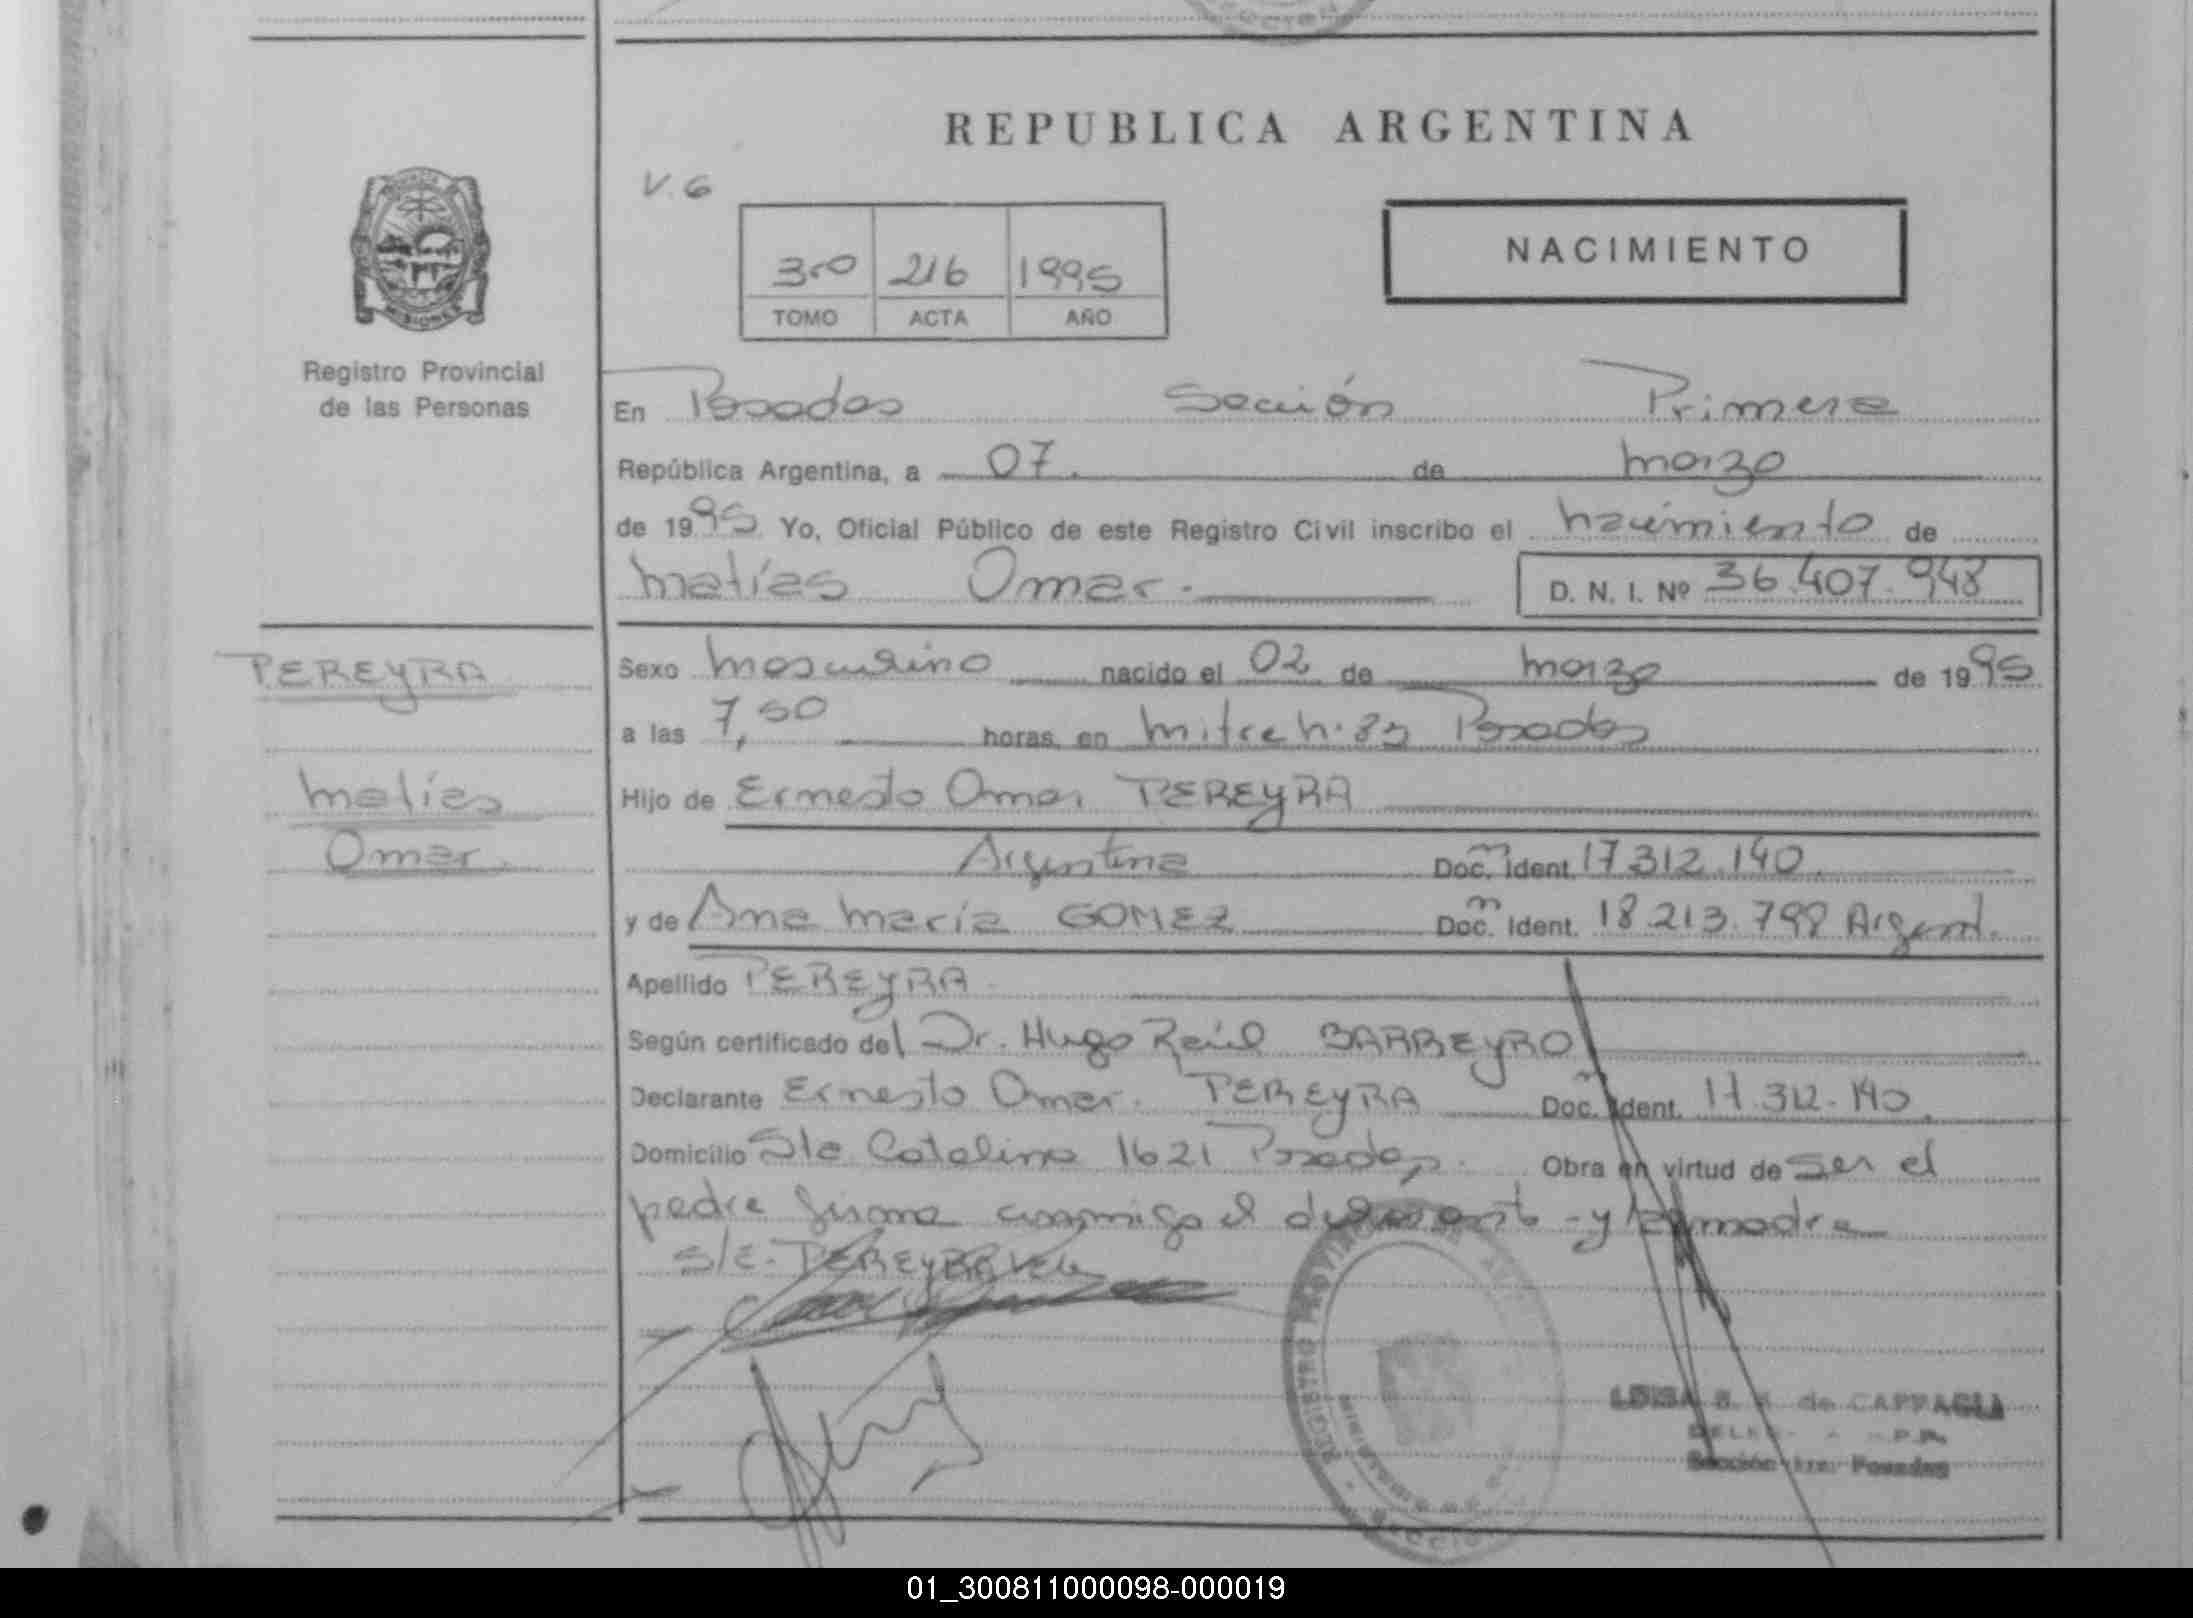 REPUBLICA ARGENTINA
V. 6
NACIMIENTO
3ro 216 1995
TOMO ACTA AÑO
MISIONES
Registro Provincial
de las Personas
En Posadas Sección Primera
República Argentina, a 07. de marzo
de 1995 Yo, Oficial Público de este Registro Civil inscribo el nacimiento de
Matías Omar.
D. N. I. Nº 36.407.948
PEREYRA
Matías
Omar.
Sexo masculino nacido el 02 de marzo de 1995
a las 7,50 horas en Mitre n. 83 Posadas
Hijo de Ernesto Omar PEREYRA
Argentina Doc. m Ident. 17.312.140
y de Ana María GOMEZ Doc. m Ident. 18.213.798 Argent.
Apellido PEREYRA
Según certificado del Dr. Hugo Raúl BARREYRO
Declarante Ernesto Omar. PEREYRA Doc. m Ident. 17.312.140.
Domicilio Sta Catalina 1621 Posadas. Obra en virtud de ser el
padre firma conmigo el - y la madre
S/E. PEREYRA Vele
REGISTRO PROVINCIAL DE LAS
SECCION
LUISA B. de CAPPAGLI
Sección 1ra. Posadas
01_300811000098-000019